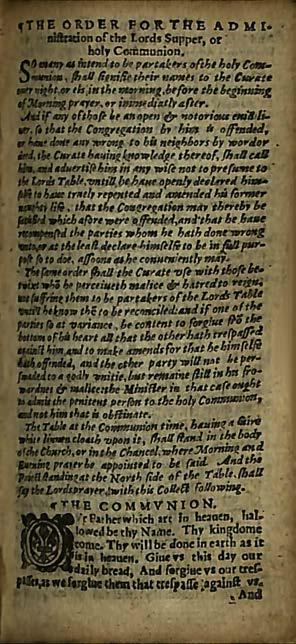 ¶THE ORDER FOR THE ADMI-
nistration of the Lords Supper, or
holy Communion.
SO many as intend to be partakers of the holy Com-
munion, shall signifie their names to the Curate
ouer night, or els in the morning, before the beginning
of Morning prayer, or immediatly after.
And if any of those be an open & notorious euill li-
uer, so that the Congregation by him is offended,
or haue done any wrong to his neighbors by word or
deed, the Curate hauing knowledge thereof, shall call
him, and aduertise him in any wise not to presume to
the Lords Table, vntill he haue openly declared him-
selfe to haue truely repented and amended his former
naughty life, that the Congregation may thereby be
satisfied which afore were offended, and that he haue
recompensed the parties whom he hath done wrong
vnto, or at the least declare himselfe to be in full pur-
pose so to doe, assoone as he conueniently may.
The same order shall the Curate vse with those be-
twixt who he perceiueth malice & hatred to reign,
not suffring them to be partakers of the Lords Table
vntill he know thē to be reconciled: and if one of the
parties so at variance, be content to forgiue frō the
bottom of his heart all that the other hath trespassed
against him, and to make amends for that he himselfe
hath offended, and the other party will not be per-
swaded to a godly vnitie, but remaine still in his fro-
wardnes & malice: the Minister in that case ought
to admit the penitent person to the holy Communion,
and not him that is obstinate.
The Table at the Communion time, hauing a faire
white linnen cloath vpon it, shall stand in the body
of the Church, or in the Chancel, where Morning and
Euening prayer be appointed to be said. And the
Priest standing at the North side of the Table, shall
say the Lords prayer, with this Collect following.
¶THE COMMVNION.
OVr Father which art in heauen, hal-
lowed be thy Name. Thy kingdome
come. Thy will be done in earth as it
is in heauen. Giue vs this day our
daily bread, And forgiue vs our tres-
passes, as we forgiue them that trespasse against vs.
And